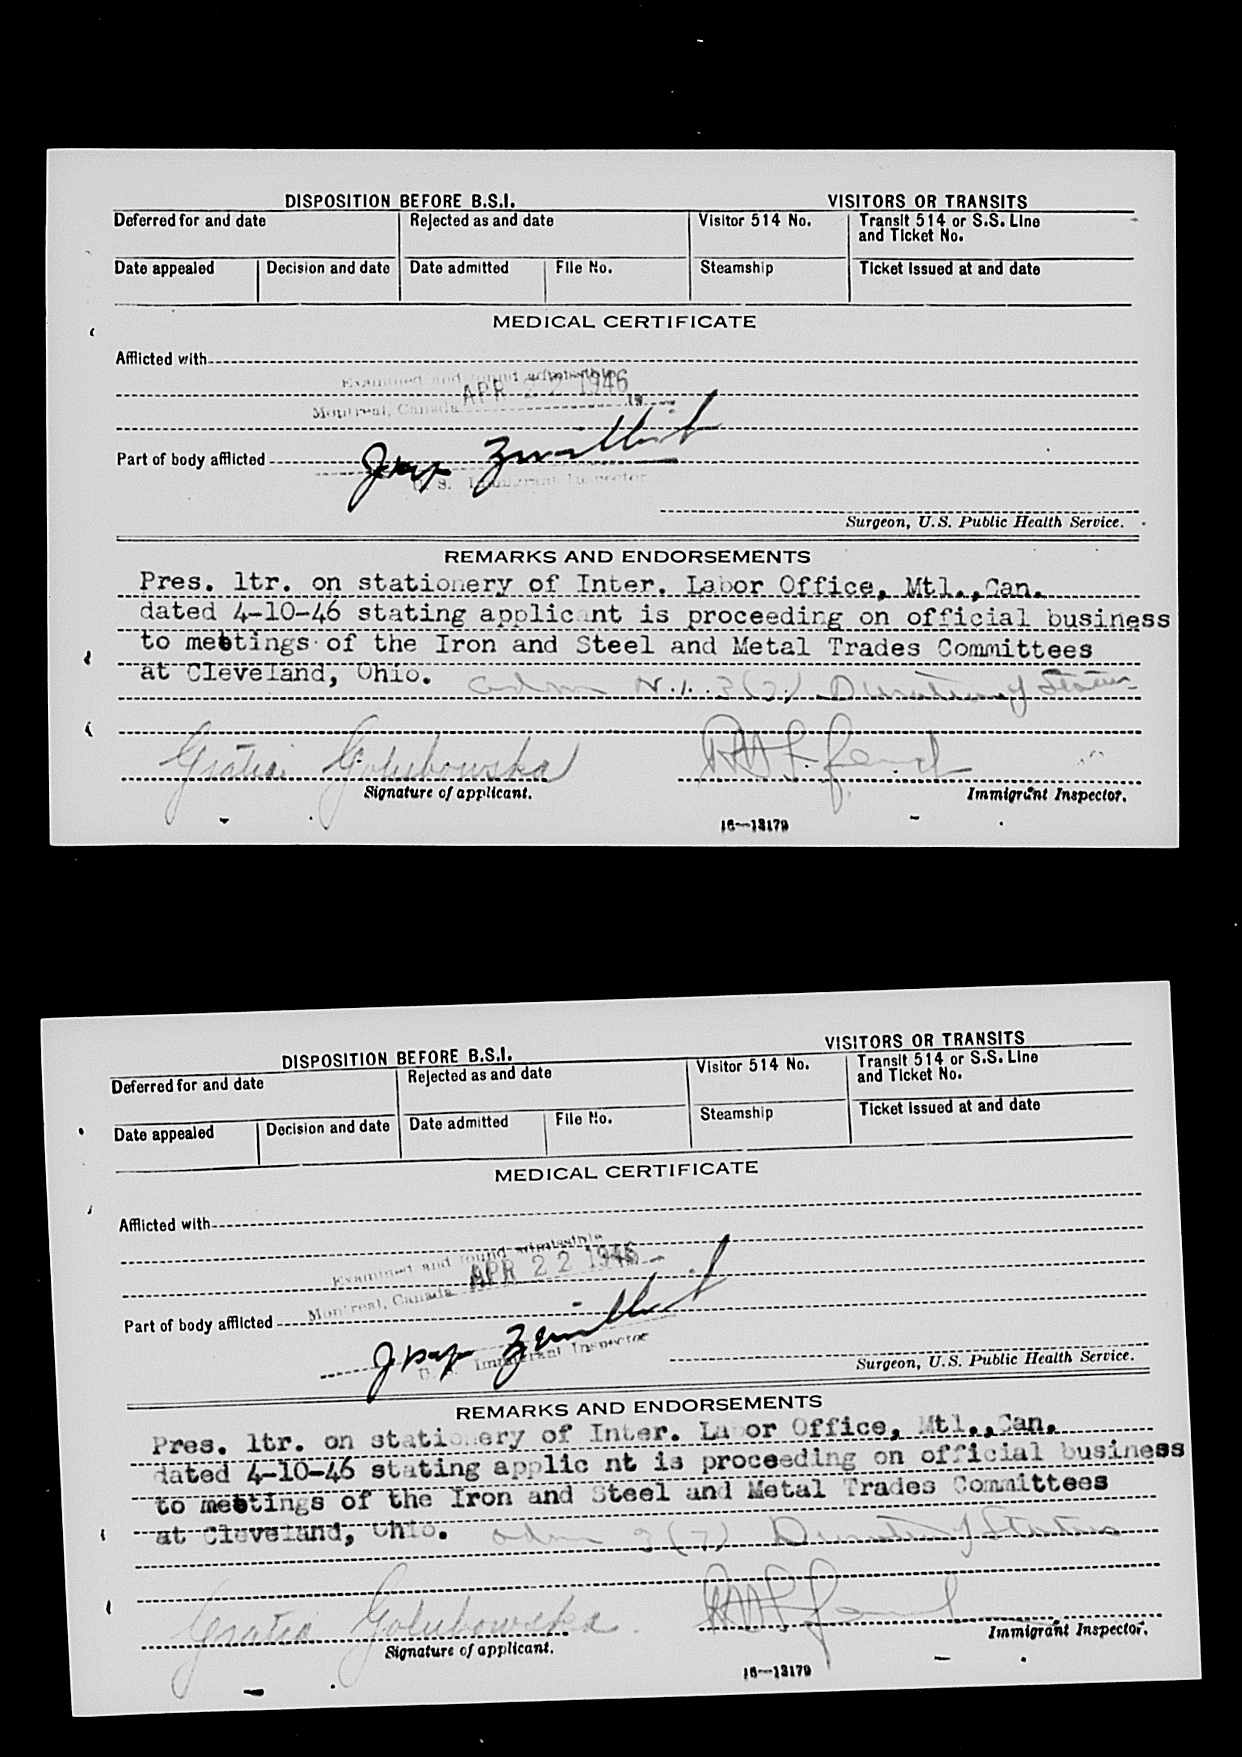 DISPOSITION BEFORE B.S.I.
VISITORS OR TRANSITS
Deferred for and date
Rejected as and date
Visitor 514 No.
Transit 514 or S.S. Line
and Ticket No.
Date appealed
Decision and date
Date admitted
File No.
Steamship
Ticket issued at and date
MEDICAL CERTIFICATE
Afflicted with
Examined and found admissible
APR 22 1946
Montreal, Canada 19
Part of body afflicted
U.S. Immigrant Inspector
Surgeon, U.S. Public Health Service.
REMARKS AND ENDORSEMENTS
Pres. ltr. on stationery of Inter. Labor Office, Mtl., Can.
dated 4-10-46 stating applicant is proceeding on official business
to meetings of the Iron and Steel and Metal Trades Committees
at Cleveland, Ohio. adm N.I. 3(7) Duration of Status
Gratia Golubowska
Signature of applicant.
Immigrant Inspector.
16—13179
DISPOSITION BEFORE B.S.I.
VISITORS OR TRANSITS
Deferred for and date
Rejected as and date
Visitor 514 No.
Transit 514 or S.S. Line
and Ticket No.
Date appealed
Decision and date
Date admitted
File No.
Steamship
Ticket issued at and date
MEDICAL CERTIFICATE
Afflicted with
Examined and found admissible
APR 22 1946
Montreal, Canada
Part of body afflicted
U.S. Immigrant Inspector
Surgeon, U.S. Public Health Service.
REMARKS AND ENDORSEMENTS
Pres. ltr. on stationery of Inter. Labor Office, Mtl., Can.
dated 4-10-46 stating applicant is proceeding on official business
to meetings of the Iron and Steel and Metal Trades Committees
at Cleveland, Ohio. adm 3(7) Duration of Status
Gratia Golubowska
Signature of applicant.
Immigrant Inspector.
16—13179